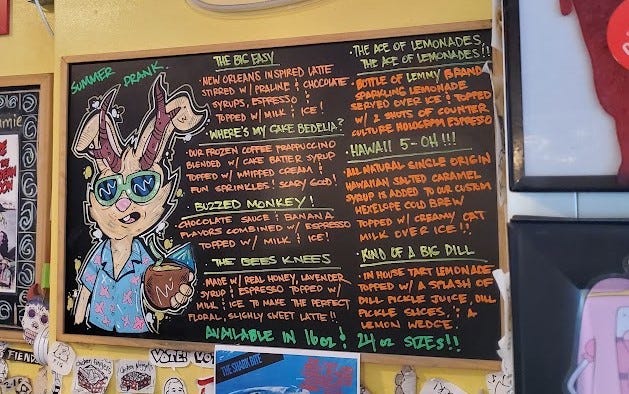 SUMMER DRANK.
THE BIG EASY
· NEW ORLEANS INSPIRED LATTE
STIRRED W/ PRALINE & CHOCOLATE
SYRUPS, ESPRESSO &
TOPPED W/ MILK & ICE!
· WHERE'S MY CAKE BEDELIA?
· OUR FROZEN COFFEE FRAPPUCCINO
BLENDED W/ CAKE BATTER SYRUP
TOPPED W/ WHIPPED CREAM &
FUN SPRINKLES! SCARY GOOD!
· BUZZED MONKEY!
CHOCOLATE SAUCE & BANANA
FLAVORS COMBINED W/ ESPRESSO
TOPPED W/ MILK & ICE!
· THE BEES KNEES
· MADE W/ REAL HONEY, LAVENDER
SYRUP & ESPRESSO TOPPED W/
MILK & ICE TO MAKE THE PERFECT
FLORAL, SLIGHLY SWEET LATTE!!
· THE ACE OF LEMONADES,
THE ACE OF LEMONADES!!
· BOTTLE OF LEMMY BRAND
SPARKLING LEMONADE
SERVED OVER ICE & TOPPED
W/ 2 SHOTS OF COUNTER
CULTURE HOLOGRAM ESPRESSO
· HAWAII 5-OH!!!
· ALL NATURAL SINGLE ORIGIN
HAWAIIAN SALTED CARAMEL
SYRUP IS ADDED TO OUR CUSTOM
HEXELOPE COLD BREW
TOPPED W/ CREAMY OAT
MILK OVER ICE!!
· KIND OF A BIG DILL
· IN HOUSE TART LEMONADE
TOPPED W/ A SPLASH OF
DILL PICKLE JUICE, DILL
PICKLE SLICES, & A
LEMON WEDGE.
AVAILABLE IN 16oz & 24oz SIZES!!
FIEND
VOTE!
THE SHARK BITE